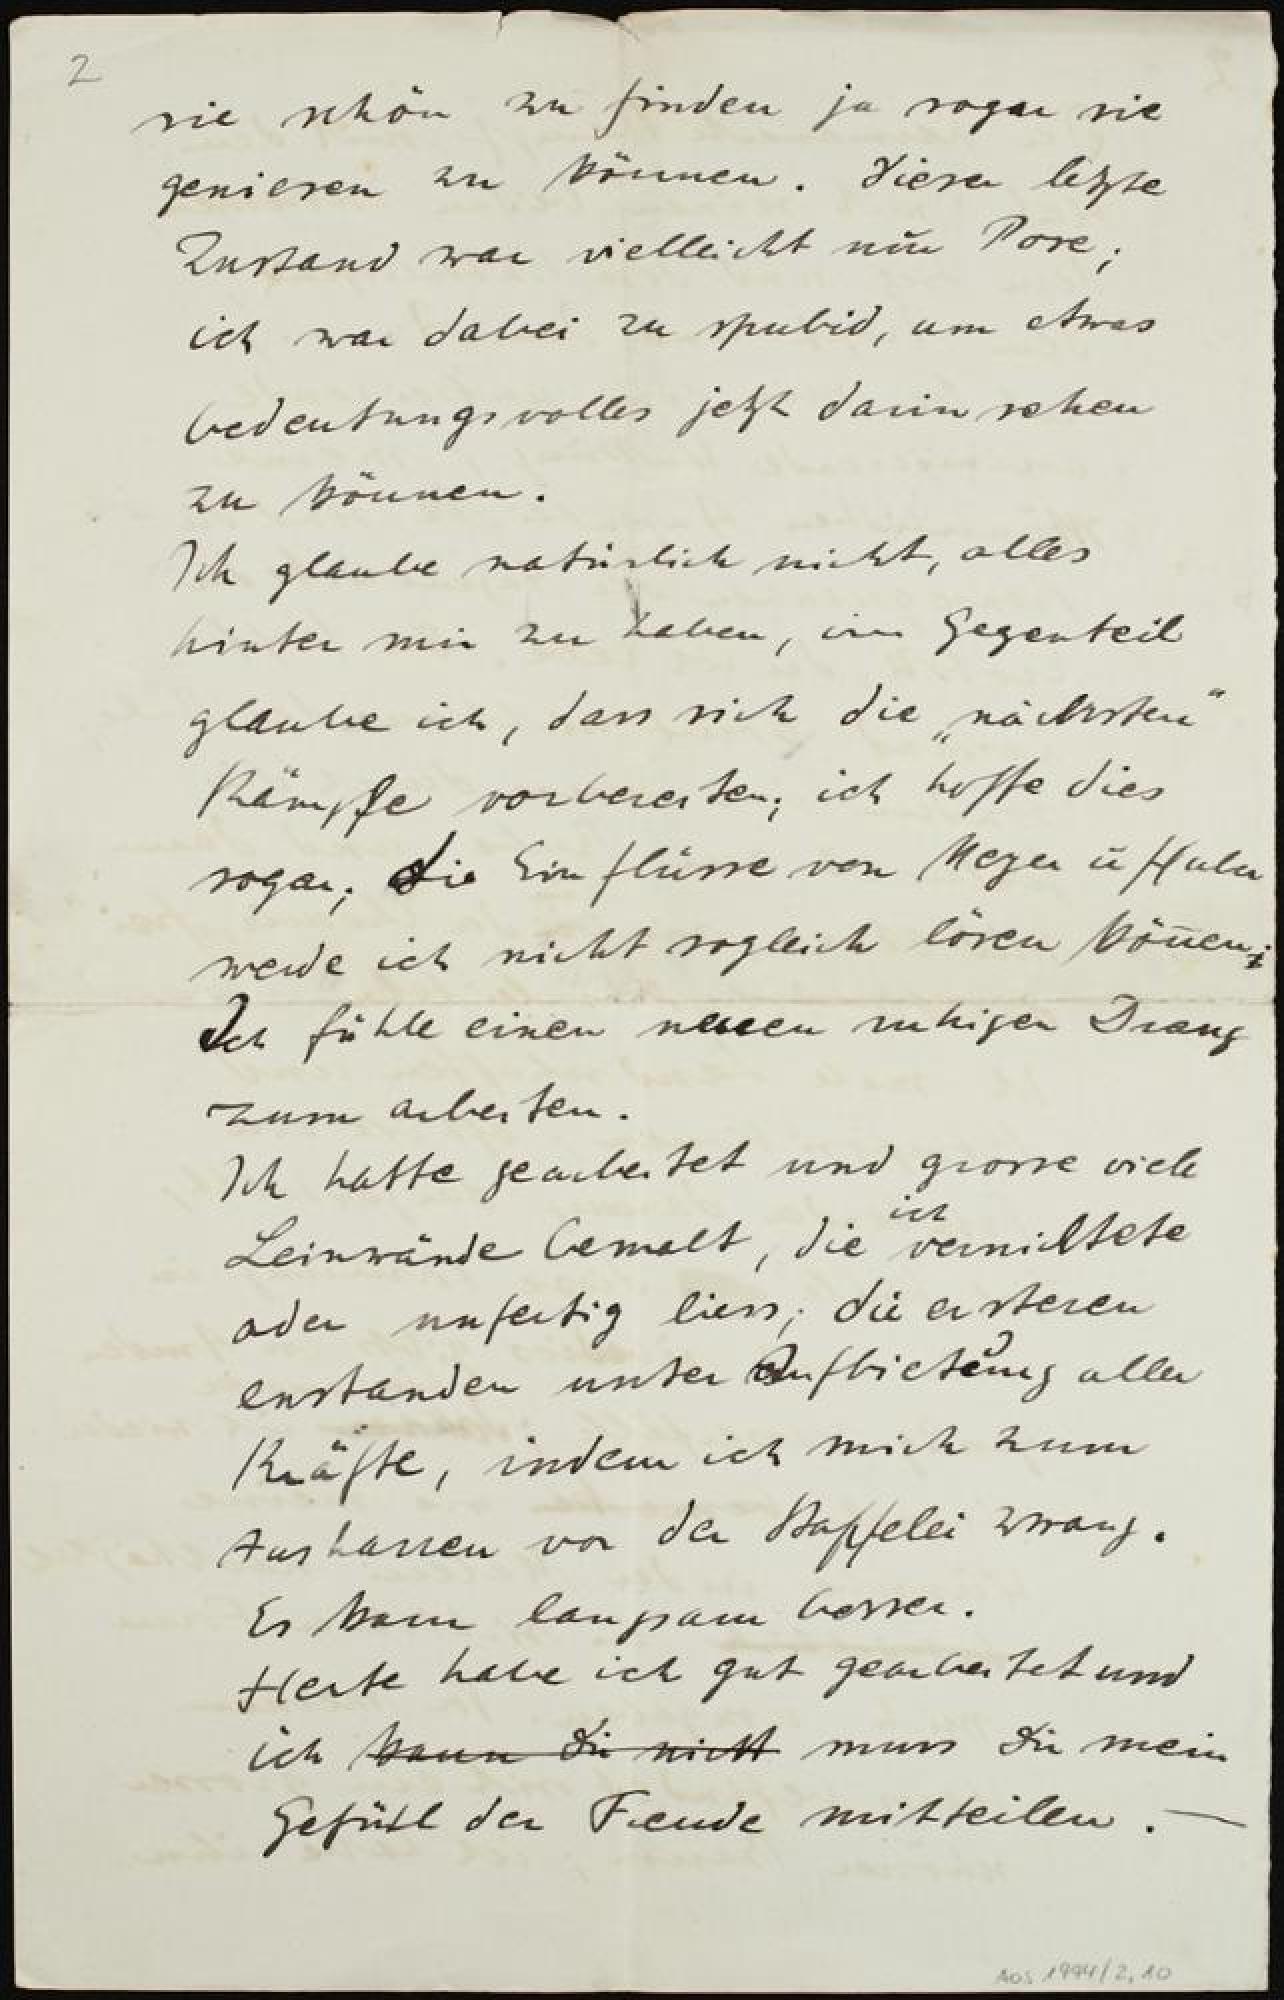 2
sie schön zu finden ja sogar sie
geniesen zu können. Dieser letzte
Zustand war vielleicht nur Pose;
ich war dabei zu stubid, um etwas
bedeutungsvolles jetzt darin sehen
zu können.
Ich glaube natürlich nicht, alles
hinter mir zu haben, im Gegenteil
glaube ich, dass sich die „nächsten“
Kämpfe vorbereiten; ich hoffe dies
sogar; die Einflüsse von Meyer ū
werde ich nicht sogleich lösen kön̄en;
Ich fühle einen neuen ruhigen Drang
zum arbeiten.
Ich hatte gearbeitet und grosse viele
Leinwände bemalt, die ich vernichtete
oder unfertig liess; die ersteren
enstanden unter Aufbietung aller
Kräfte, indem ich mich zum
Ausharren vor der Staffelei zwang.
Es kam langsam besser.
Heute habe ich gut gearbeitet und
ich kann Dir nicht muss Dir mein
Gefühl der Freude mitteilen. —
AOS 1994/2,10